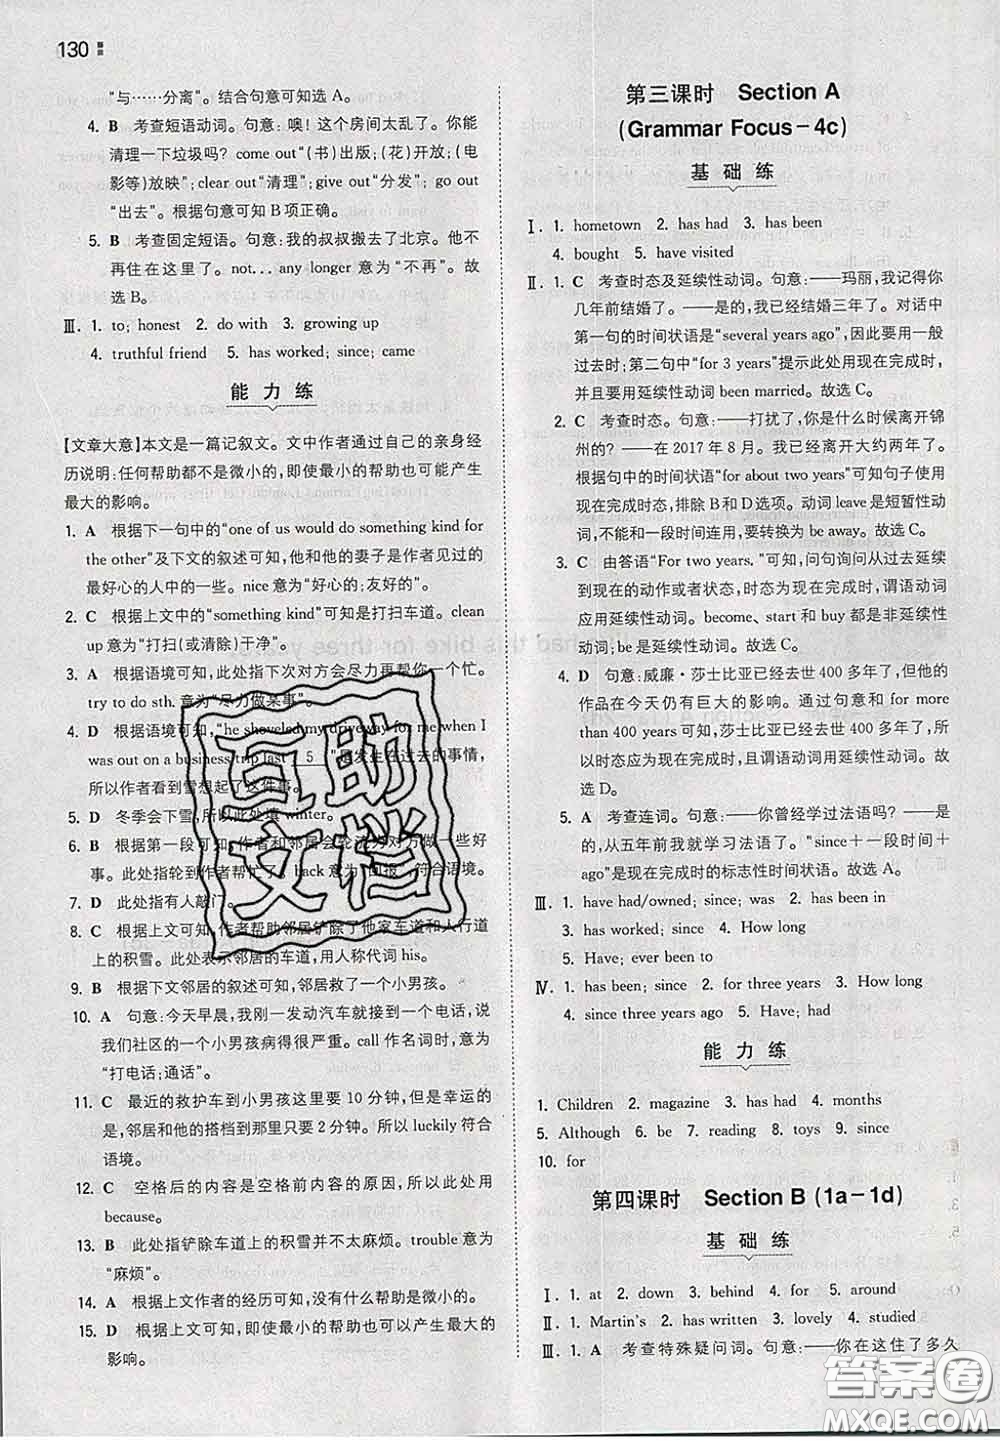 130
“与……分离”。结合句意可知选 A。
4. B 考查短语动词。句意：噢！这个房间太乱了。你能
清理一下垃圾吗？come out“(书)出版；(花)开放；(
电影等)放映”；clear out“清理”；give out“分发”；go out
“出去”。根据句意可知 B 项正确。
5. B 考查固定短语。句意：我的叔叔搬去了北京。他不
再住在这里了。not... any longer 意为“不再”。故
选 B。
Ⅲ. 1. to; honest 2. do with 3. growing up
4. truthful friend 5. has worked; since; came
能力练
【文章大意】本文是一篇记叙文。文中作者通过自己的亲身经
历说明：任何帮助都不是微小的，即使最小的帮助也可能产生
最大的影响。
1. A 根据下一句中的“one of us would do something kind for
the other”及下文的叙述可知，他和他的妻子是作者见过的
最好心的人中的一些。nice 意为“好心的；友好的”。
2. C 根据上文中的“something kind”可知是打扫车道。clean
up 意为“打扫(或清除)干净”。
3. A 根据语境可知，此处指下次对方会尽力再帮你一个忙。
try to do sth. 意为“尽力做某事”。
4. D 根据语境可知，“he shoveled my driveway for me when I
was out on a business trip last 5 ”是发生在过去的事情，
所以作者看到雪想起了这件事。
5. D 冬季会下雪，所以此处填 winter。
6. B 根据第一段可知，作者和邻居会轮流为对方做一些好
事。此处指轮到作者帮忙了。back 意为“回报”，符合语境。
7. D 此处指有人敲门。
8. C 根据上文可知，作者帮助邻居铲除了他家车道和人行道
上的积雪。此处表示邻居的车道，用人称代词 his。
9. B 根据下文邻居的叙述可知，邻居救了一个小男孩。
10. A 句意：今天早晨，我刚一发动汽车就接到一个电话，说
我们社区的一个小男孩病得很严重。call 作名词时，意为
“打电话；通话”。
11. C 最近的救护车到小男孩这里要 10 分钟，但幸运的是
，邻居和他的搭档到那里只要 2 分钟。所以 luckily 符合
语境。
12. C 空格后的内容是空格前内容的原因，所以此处用
because。
13. B 此处指铲除车道上的积雪并不太麻烦。trouble 意为
“麻烦”。
14. A 根据上文作者的经历可知，没有什么帮助是微小的。
15. D 根据上文可知，即使最小的帮助也可以产生最大的
影响。
第三课时 Section A
(Grammar Focus-4c)
基础练
Ⅰ. 1. hometown 2. has had 3. has been
4. bought 5. have visited
Ⅱ. 1. C 考查时态及延续性动词。句意：——玛丽，我记得你
几年前结婚了。——是的，我已经结婚三年了。对话中
第一句的时间状语是“several years ago”，因此要用一般
过去时；第二句中“for 3 years”提示此处用现在完成时，
并且要用延续性动词 been married。故选 C。
2. C 考查时态。句意：——打扰了，你是什么时候离开锦
州的？——在 2017 年 8 月。我已经离开大约两年了。
根据句中的时间状语“for about two years”可知句子应用
现在完成时态，排除 B 和 D 选项。动词 leave 是短暂性动
词，不能和一段时间连用，要转换为 be away。故选 C。
3. C 由答语“For two years.”可知，问句询问从过去延续
到现在的动作或者状态，时态为现在完成时，谓语动词
应用延续性动词。become、start 和 buy 都是非延续性动
词；be 是延续性动词。故选 C。
4. D 句意：威廉·莎士比亚已经去世 400 多年了，但他的
作品在今天仍有巨大的影响。通过句意和 for more
than 400 years 可知，莎士比亚已经去世 400 多年了，所
以时态应为现在完成时，且谓语动词用延续性动词。
故选 D。
5. A 考查连词。句意：——你曾经学过法语吗？——是
的，从五年前我就学习法语了。“since＋一段时间＋
ago”是现在完成时的标志性时间状语。故选 A。
Ⅲ. 1. have had/owned; since; was 2. have been in
3. has worked; since 4. How long
5. Have; ever been to
Ⅳ. 1. has been; since 2. for three years 3. How long
4. since three years ago 5. Have; had
能力练
1. Children 2. magazine 3. has had 4. months
5. Although 6. be 7. reading 8. toys 9. since
10. for
第四课时 Section B (1a-1d)
基础练
Ⅰ. 1. at 2. down 3. behind 4. for 5. around
Ⅱ. 1. Martin's 2. has written 3. lovely 4. studied
Ⅲ. 1. A 考查特殊疑问词。句意：——你在这住了多久
互助
文档
答案圈
MXQE.COM